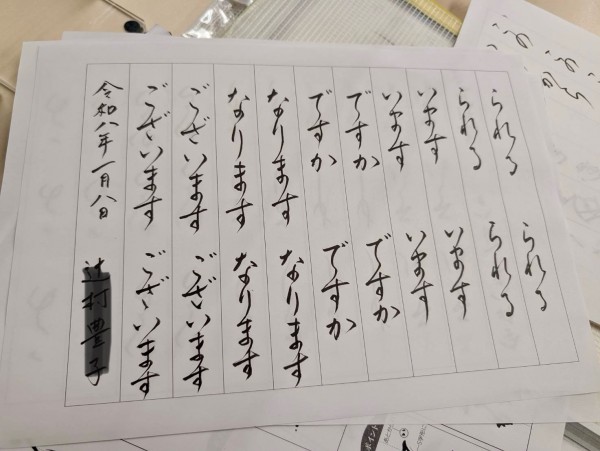 られる られる
られる られる
います います
います います
ですか ですか
ですか ですか
なります なります
なります なります
ございます ございます
ございます ございます
令和八年一月八日 辻村豊子
ポイント